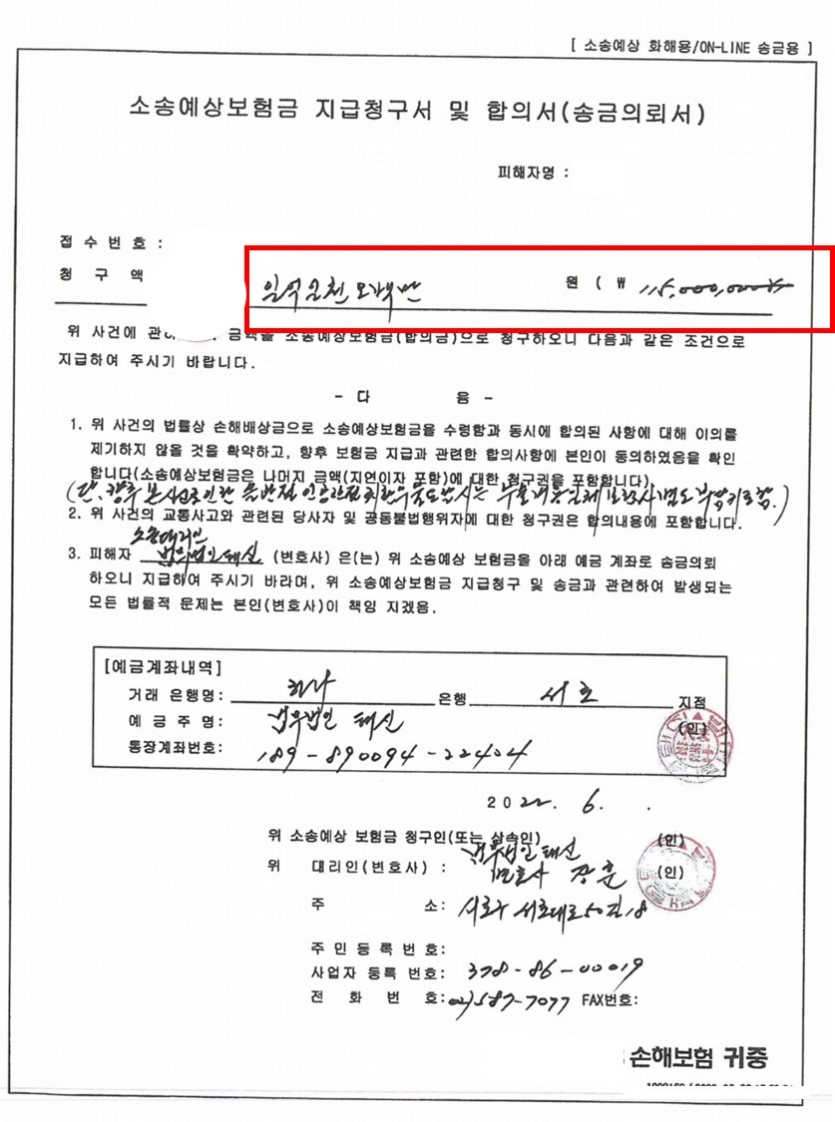 [ 소송예상 화해용/ON-LINE 송금용 ]
소송예상보험금 지급청구서 및 합의서(송금의뢰서)
피해자명 :
접 수 번 호 :
청 구 액 일억일천오백만 원 ( ₩ 115,000,000
위 사건에 관 금액을 소송예상보험금(합의금)으로 청구하오니 다음과 같은 조건으로
지급하여 주시기 바랍니다.
- 다 음 -
1. 위 사건의 법률상 손해배상금으로 소송예상보험금을 수령함과 동시에 합의된 사항에 대해 이의를
제기하지 않을 것을 확약하고, 향후 보험금 지급과 관련한 합의사항에 본인이 동의하였음을 확인
합니다(소송예상보험금은 나머지 금액(지연이자 포함)에 대한 청구권을 포함합니다).
(단, 향후
2. 위 사건의 교통사고와 관련된 당사자 및 공동불법행위자에 대한 청구권은 합의내용에 포함합니다.
소송대리인
3. 피해자 법무법인 태신 (변호사) 은(는) 위 소송예상 보험금을 아래 예금 계좌로 송금의뢰
하오니 지급하여 주시기 바라며, 위 소송예상보험금 지급청구 및 송금과 관련하여 발생되는
모든 법률적 문제는 본인(변호사)이 책임 지겠음.
[예금계좌내역]
거래 은행명: 하나 은행 서초 지점
예 금 주 명: 법무법인 태신 (인)
통장계좌번호: 189-890094-22404
2022. 6. .
위 소송예상 보험금 청구인(또는 상속인) (인)
법무법인 태신
위 대리인(변호사) : 변호사 장훈 (인)
주 소: 서초구 서초대로50길 18
주 민 등 록 번 호:
사업자 등록 번호: 378-86-00019
전 화 번 호: 02)587-7077 FAX번호:
손해보험 귀중